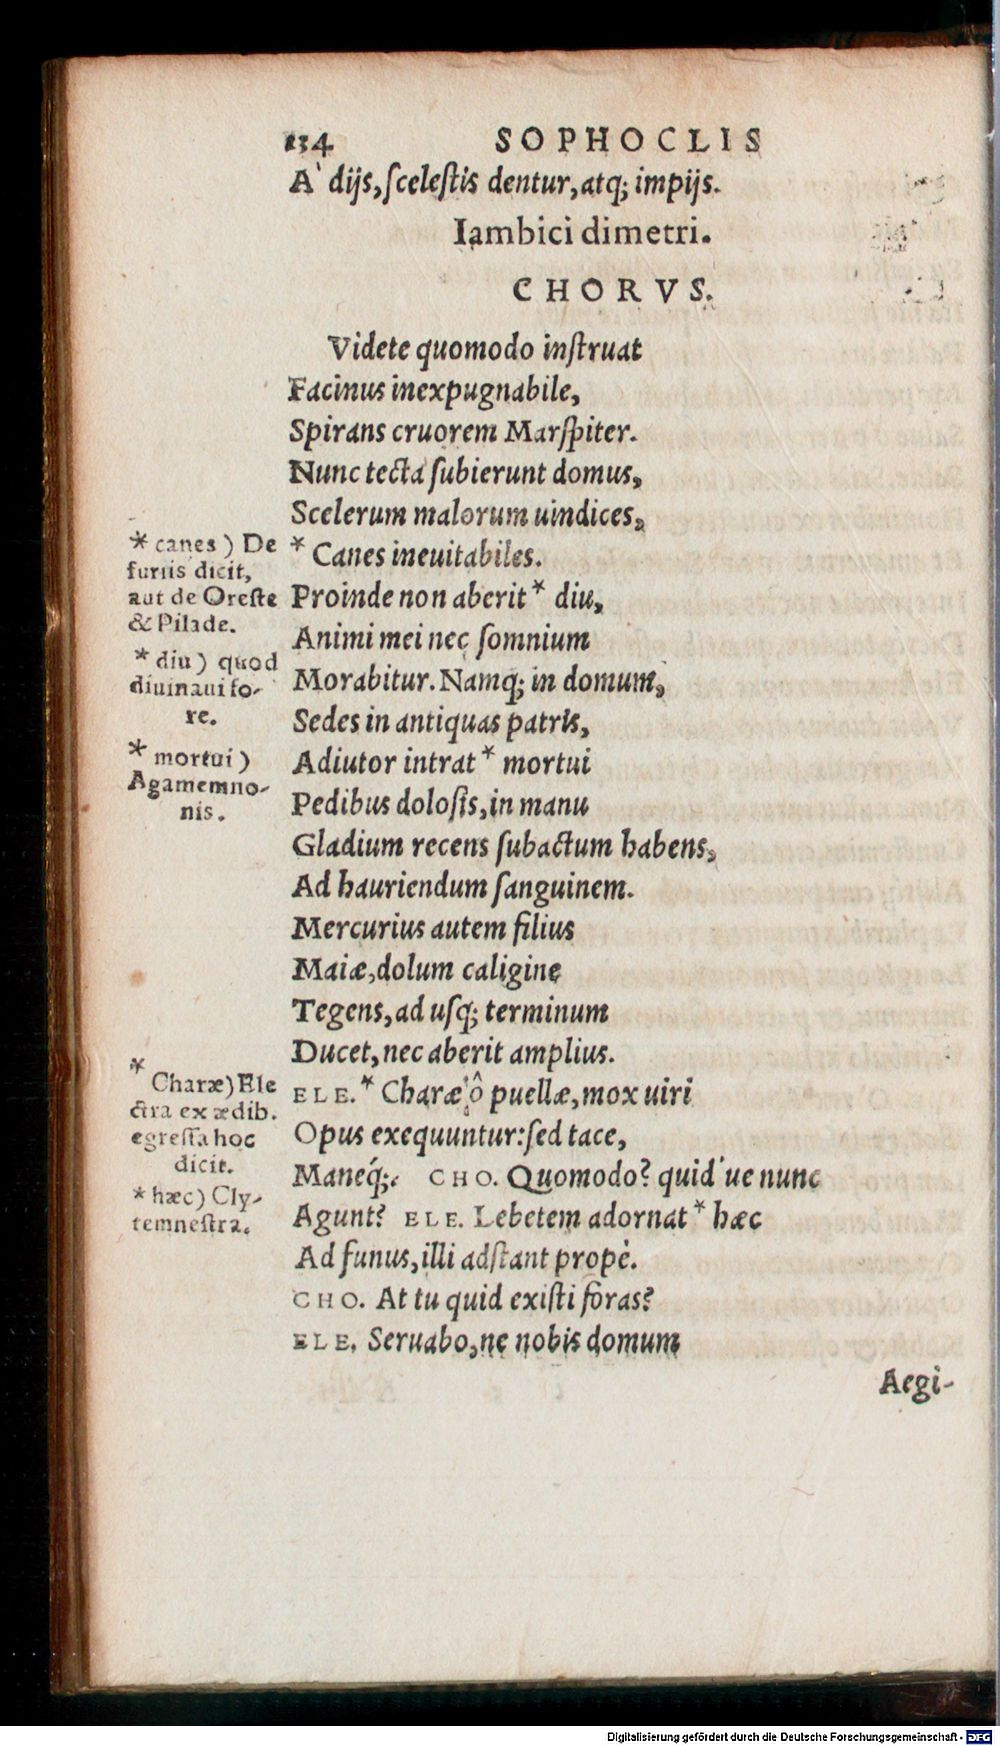 134 SOPHOCLIS
A` dijs, ſceleſtis dentur, atq; impijs.
Iambici dimetri.
CHORVS.
Videte quomodo inſtruat
Facinus inexpugnabile,
Spirans cruorem Marſpiter.
Nunc tecta ſubierunt domus,
Scelerum malorum uindices,
* Canes ineuitabiles.
Proinde non aberit * diu,
Animi mei nec ſomnium
Morabitur. Namq; in domum,
Sedes in antiquas patris,
Adiutor intrat * mortui
Pedibus doloſis, in manu
Gladium recens ſubactum habens,
Ad hauriendum ſanguinem.
Mercurius autem filius
Maiæ, dolum caligine
Tegens, ad uſq; terminum
Ducet, nec aberit amplius.
ELE. * Charæ ô puellæ, mox uiri
Opus exequuntur: ſed tace,
Maneq́;. CHO. Quomodo? quid' ue nunc
Agunt? ELE. Lebetem adornat * hæc
Ad funus, illi adſtant propè.
CHO. At tu quid exiſti foras?
ELE. Seruabo, ne nobis domum
Aegi-
* canes) De
furiis dicit,
aut de Oreſte
& Pilade.
* diu) quod
diuinaui fo-
re.
* mortui)
Agamemno-
nis.
*
Charæ) Ele
ctra ex ædib.
egreſſa hoc
dicit.
* hæc) Cly-
temneſtra.
Digitalisierung gefördert durch die Deutsche Forschungsgemeinschaft - DFG